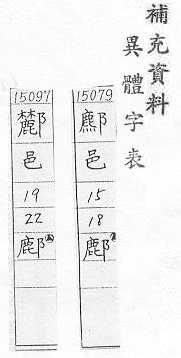 補充資料
異體字表
15079
鄜
邑
15
18
15097
邑
19
22